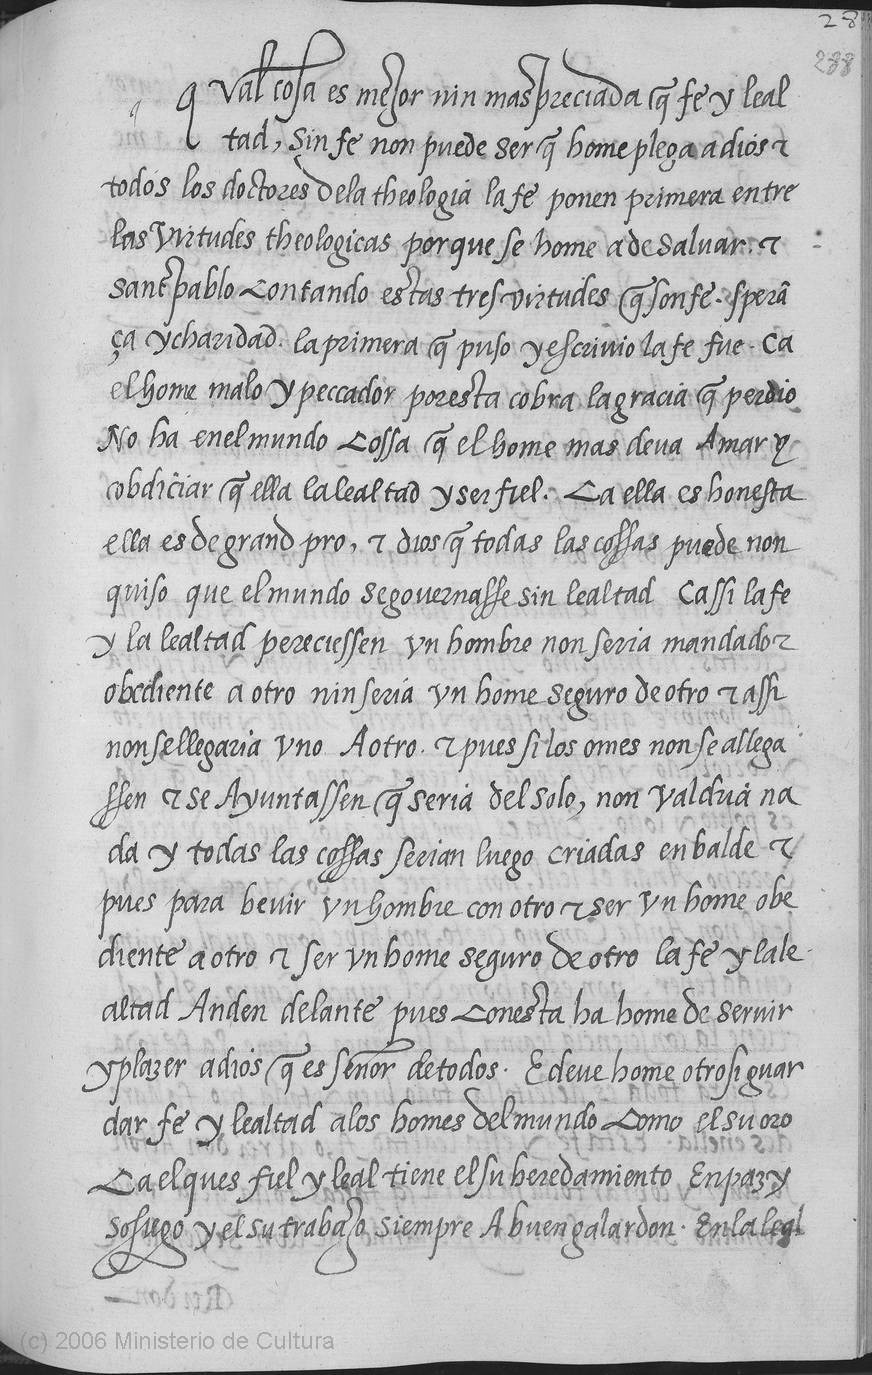 28
288
Qval cosa es mejor nin mas preciada q̃ fe y leal
tad, sin fe non puede ser q̃ home plega a dios τ
todos los doctores dela theologia la fe ponen primera entre
las virtudes theologicas por que se home a de saluar. τ
sant pablo Contando estas tres virtudes q̃ son fe. sperã
ça y charidad. la primera q̃ puso y escriuio la fe fue. Ca
el home malo y peccador por esta cobra la gracia q̃ perdio
No ha enel mundo Cossa q̃ el home mas deua Amar y
cobdiciar q̃ ella la lealtad y ser fiel. Ca ella es honesta
ella es de grand pro, τ dios q̃ todas las cossas puede non
quiso que el mundo se gouernasse sin lealtad Ca ssi la fe
y la lealtad pereciessen vn hombre non seria mandado τ
obediente a otro nin seria vn home seguro de otro τ assi
non se llegaria vno A otro. τ pues si los omes non se allega
ssen τ se Ayuntassen q̃ seria del solo, non valdria na
da y todas las cossas serian luego criadas en balde τ
pues para beuir vn hombre con otro τ ser vn home obe
diente a otro τ ser vn home seguro de otro la fe y la le
altad Anden delante pues Con esta ha home de seruir
y plazer a dios q̃ es señor de todos. E deue home otrosi guar
dar fe y lealtad a los homes del mundo Como el su oro
Ca el ques fiel y leal tiene el su heredamiento En paz y
sosiego y el su trabajo siempre A buen galardon. En la leal
(c) 2006 Ministerio de Cultura